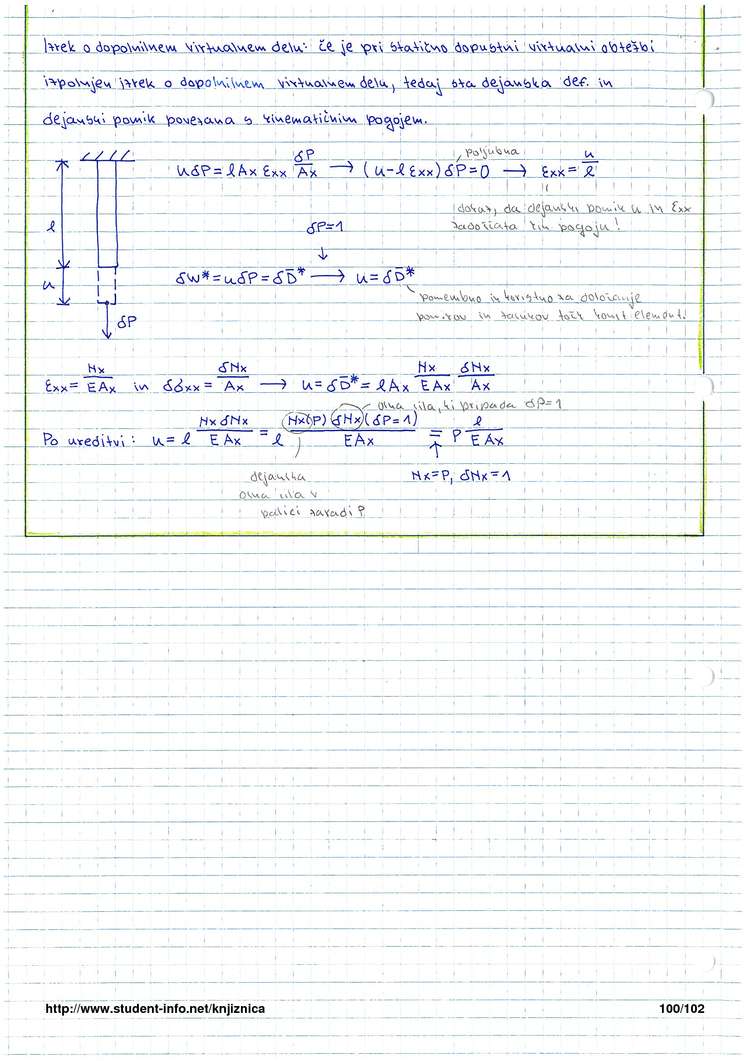 Izrek o dopolnilnem virtualnem delu: če je pri statično dopustni virtualni obtežbi
izpolnjen izrek o dopolnilnem virtualnem delu, tedaj sta dejanska def. in
dejanski pomik povezana s kinematičnim pogojem.
poljubna
uδP = lAx εxx δP/Ax → (u-lεxx)δP=0 → εxx = u/l
dokaz, da dejanski pomik u in εxx
zadoščata kin pogoju!
l
δP=1
↓
u
δW* = uδP = δD̄* → u = δD̄*
pomembno in koristno za določanje
pomikov in zasukov točk konst elementi.
δP
εxx = Nx/EAx in δσxx = δNx/Ax → u = δD̄* = lAx Nx/EAx δNx/Ax
osna sila, ki pripada δP=1
Po ureditvi: u = l NxδNx/EAx = l Nx(P) δNx(δP=1)/EAx = P l/EAx
↑
dejanska
Nx=P, δNx=1
osna sila v
palici zaradi P
http://www.student-info.net/knjiznica
100/102